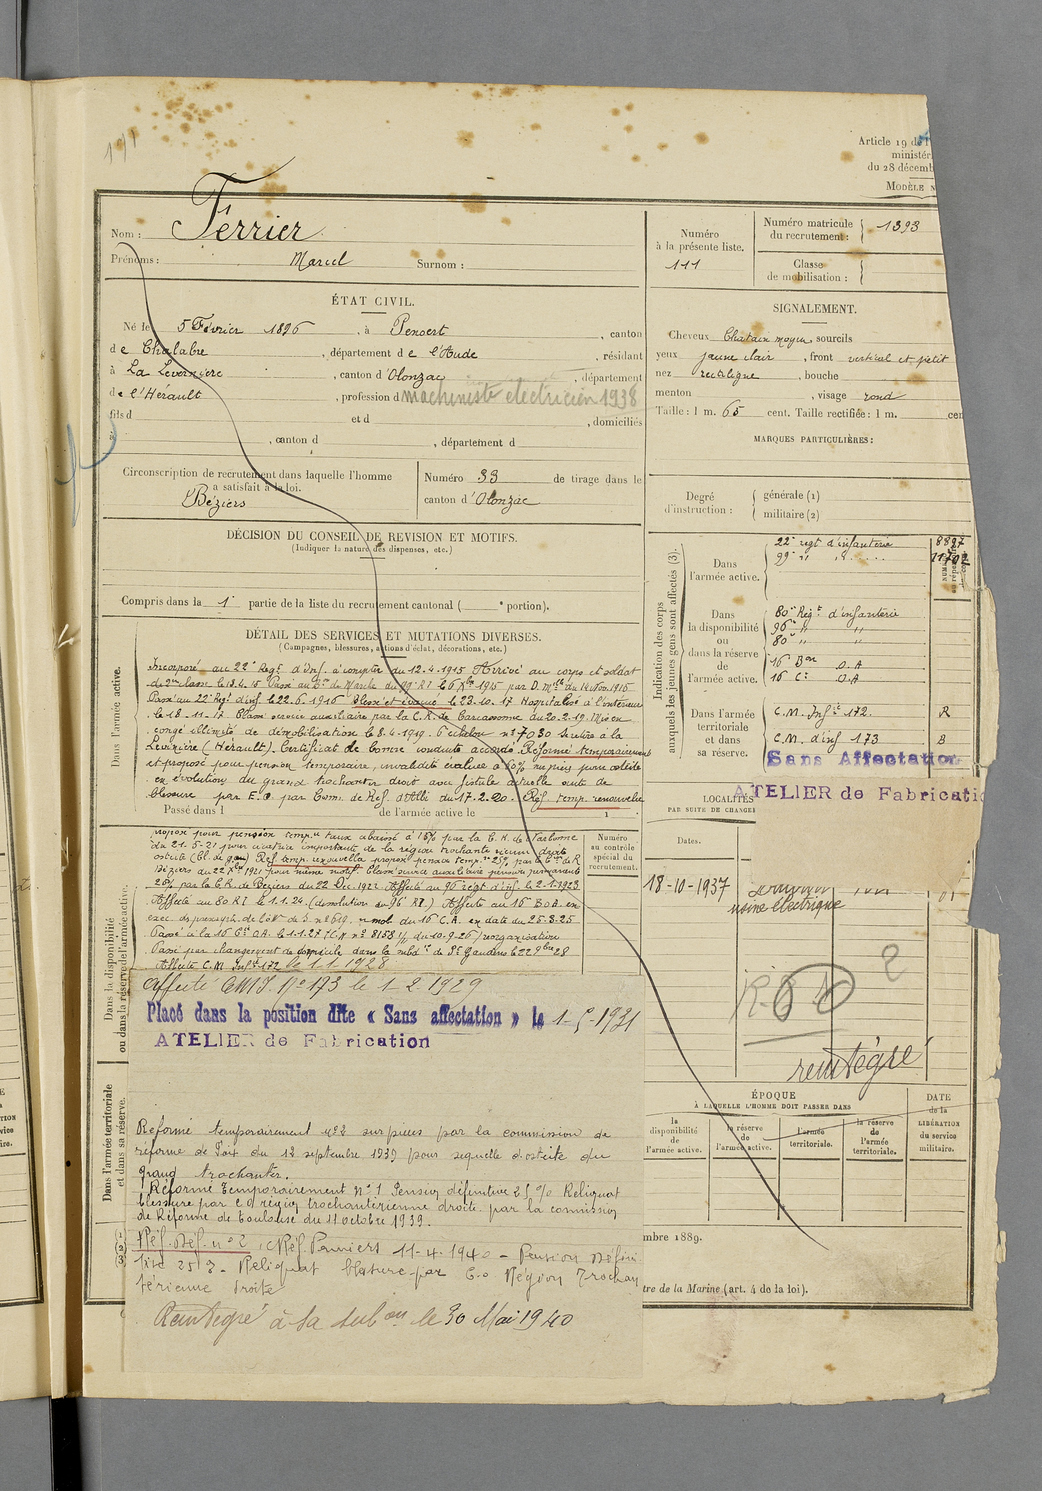 Article 19 de l'
ministér
du 28 décemb
MODÈLE N
Nom : Ferrier
Prénoms : Marcel Surnom :
Numéro
à la présente liste.
111
Numéro matricule
du recrutement : 1393
Classe
de mobilisation :
ÉTAT CIVIL.
Né le 5 Février 1896, à Pensert, canton
de Chalabre, département de l'Aude, résidant
à La Levinière, canton d'Olonzac, département
de l'Hérault, profession d machiniste électricien 1938
fils d et d , domiciliés
à , canton d , département d
SIGNALEMENT.
Cheveux Chatain moyen, sourcils
yeux jaune clair, front vertical et petit
nez rectiligne, bouche
menton , visage rond
Taille : 1 m. 65 cent. Taille rectifiée : 1 m. cen
MARQUES PARTICULIÈRES :
Circonscription de recrutement dans laquelle l'homme
a satisfait à la loi.
Béziers
Numéro 33 de tirage dans le
canton d'Olonzac
Degré
d'instruction :
générale (1)
militaire (2)
DÉCISION DU CONSEIL DE REVISION ET MOTIFS.
(Indiquer la nature des dispenses, etc.)
Compris dans la 1e partie de la liste du recrutement cantonal ( e portion).
Indication des corps
auxquels les jeunes gens sont affectés (3).
Dans
l'armée active.
22e regt d'infanterie 8827
99e " " 11702
Dans
la disponibilité
ou
dans la réserve
de
l'armée active.
80e Regt d'infanterie
96e " "
80e " "
16 Bon O.A
16 Cie O.A
Dans l'armée
territoriale
et dans
sa réserve.
C.M. Infie 172. R
C.M. d'inf 173 B
Sans Affectation
ATELIER de Fabricatio
DÉTAIL DES SERVICES ET MUTATIONS DIVERSES.
(Campagnes, blessures, actions d'éclat, décorations, etc.)
Dans l'armée active.
Incorporé au 22e Regt d'Inf. à compter du 12.4.1915 Arrivé au corps et soldat
de 2me classe le 13.4.15 Passé au Bon de Marche du 99e RI le 6 Xbre 1915 par D. Mlle du 14 Nov. 1915
Passé au 22e Regt d'inf le 22.6.1916 Blessé et évacué le 23.10.17 Hospitalisé à l'intérieur
le 18.11.17. Classé service auxiliaire par la C.R. de Carcassonne du 20.2.19. Mis en
congé illimité de démobilisation le 8.6.1919. 6e échelon no 7030 Se retire à la
Levinière (Hérault). Certificat de bonne conduite accordé. Réformé temporairement
et proposé pour pension temporaire, invalidité évaluée à 60% sur pièces pour ostéite
en évolution du grand trochanter droit avec fistule actuelle suite de
blessure par E.O. par Com. de Ref. d'Albi du 17.2.20. Ref. temp. renouvelée
Passé dans l de l'armée active le 1
Dans la disponibilité
ou dans la réserve de l'armée active.
Numéro
au contrôle
spécial du
recrutement.
proposé pour pension temp. taux abaissé à 15% par la C.R. de Narbonne
du 21.5.21 pour cicatrice importante de la région trochantérienne droite
ostéite (Bl. de gue) Ref temp. renouvelée proposé pension temp. 25% par la Con de R
Béziers du 22 Xbre 1921 pour même motif. Classé service auxiliaire pension permanente
25% par la C.R. de Béziers du 22 Dec 1922 Affecté au 96e regt d'inf. le 2.1.1923
Affecté au 80 RI le 1.1.24. (dissolution du 96e RI) Affecté au 16e B O A en
Passé à la 16 Cie O.A. le 1.1.27 (C.M no 8158 1/2 du 10.9.26) reorganisation
Passé par changement de domicile dans la subdon de St Gaudens le 22 9bre 28
Affecté C.M. Infie 172 le 1.1.1928
affecté CMI. No 173 le 1.2.1929
Placé dans la position dite « Sans affectation » le 1-5-1931
ATELIER de Fabrication
LOCALITÉS
PAR SUITE DE CHANGE
Dates.
18-10-1937
usine électrique
R. 2
reintégré
Dans l'armée territoriale
et dans sa réserve.
Reformé temporairement no 2 sur pièces par la commission de
réforme de Foix du 12 septembre 1939 pour sequelle d'ostéite du
grand trochanter.
Réformé Temporairement No 1 Pension définitive 25% Reliquat
blessure par EO région trochantérienne droite par la commission
de Réforme de Toulouse du 11 octobre 1939.
Réf. Def. no 2, CRéf. Pamiers 11-4-1940 - Pension Défini
tive 25% - Reliquat blessure par E.o Région Trochan
térienne droite
Réintégré à sa subon le 30 Mai 1940
ÉPOQUE
À LAQUELLE L'HOMME DOIT PASSER DANS
la
disponibilité
de
l'armée active.
la réserve
de
l'armée active.
l'armée
territoriale.
la réserve
de
l'armée
territoriale.
DATE
de la
LIBÉRATION
du service
militaire.
mbre 1889.
tre de la Marine (art. 4 de la loi).